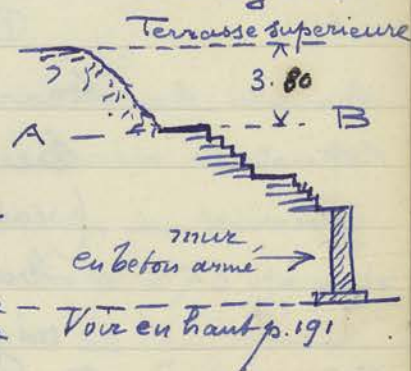 Terrasse superieure
3.80
A B
mur
en beton armé
Voir en haut p.191